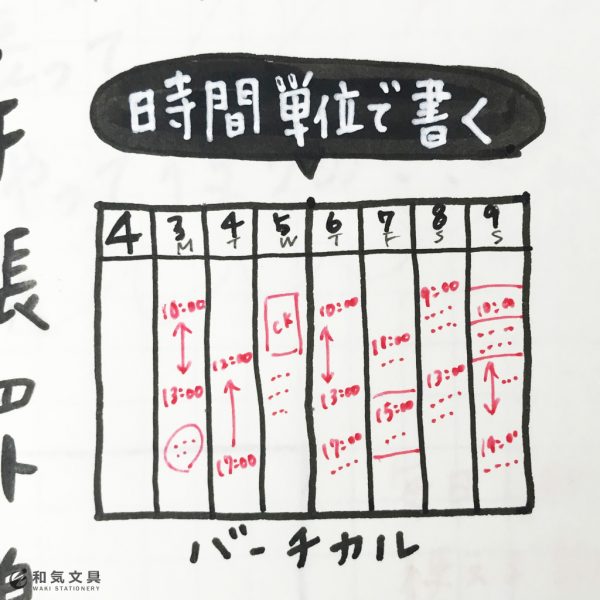 時間単位で書く
4 3 4 5 6 7 8 9
M T W T F S S
10:00 13:00
12:00 17:00
CK
10:00 13:00 17:00
11:00 15:00
9:00 13:00
10:00 19:00
バーチカル
和気文具
WAKI STATIONERY